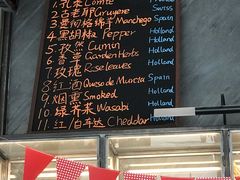 1 孔朵 Comte
2 古老耶 Gruyere Swiss
3 曼彻格绵羊 Manchego Spain
4 黑胡椒 Pepper Holland
5 孜然 Cumin Holland
6 香草 Garden Herbs Holland
7 玫瑰 Rose leaves Holland
8 红酒 Queso de Murcia Spain
9 烟熏 Smoked Holland
10 绿芥菜 Wasabi Holland
11 红/白车达 Cheddar Holland